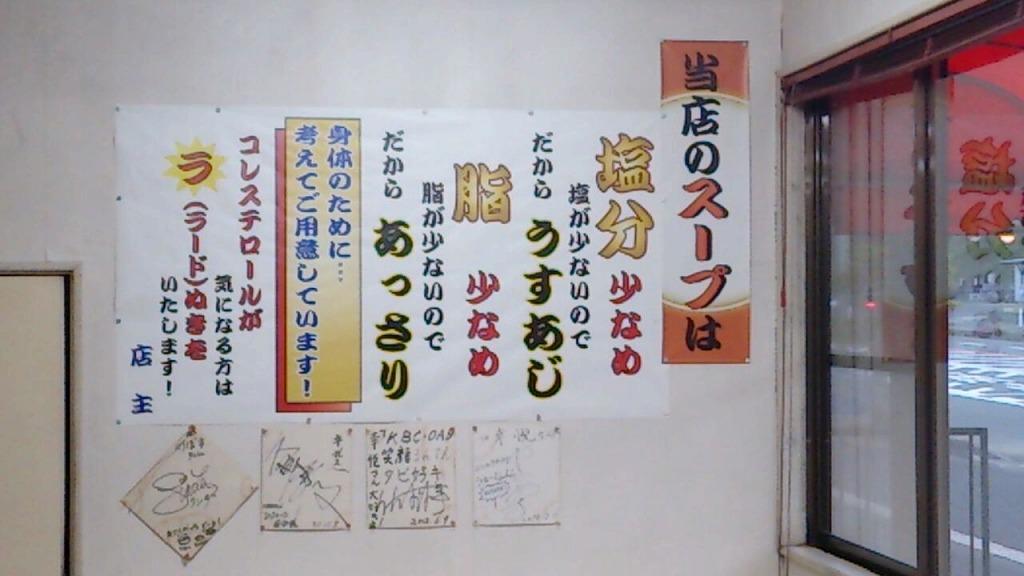 当店のスープは
塩分 少なめ
塩が少ないので
だから うすあじ
脂 少なめ
脂が少ないので
だから あっさり
身体のために…
考えてご用意しています！
コレステロールが
気になる方は
ラ（ラード）ぬきを
いたします！
店主
塩分